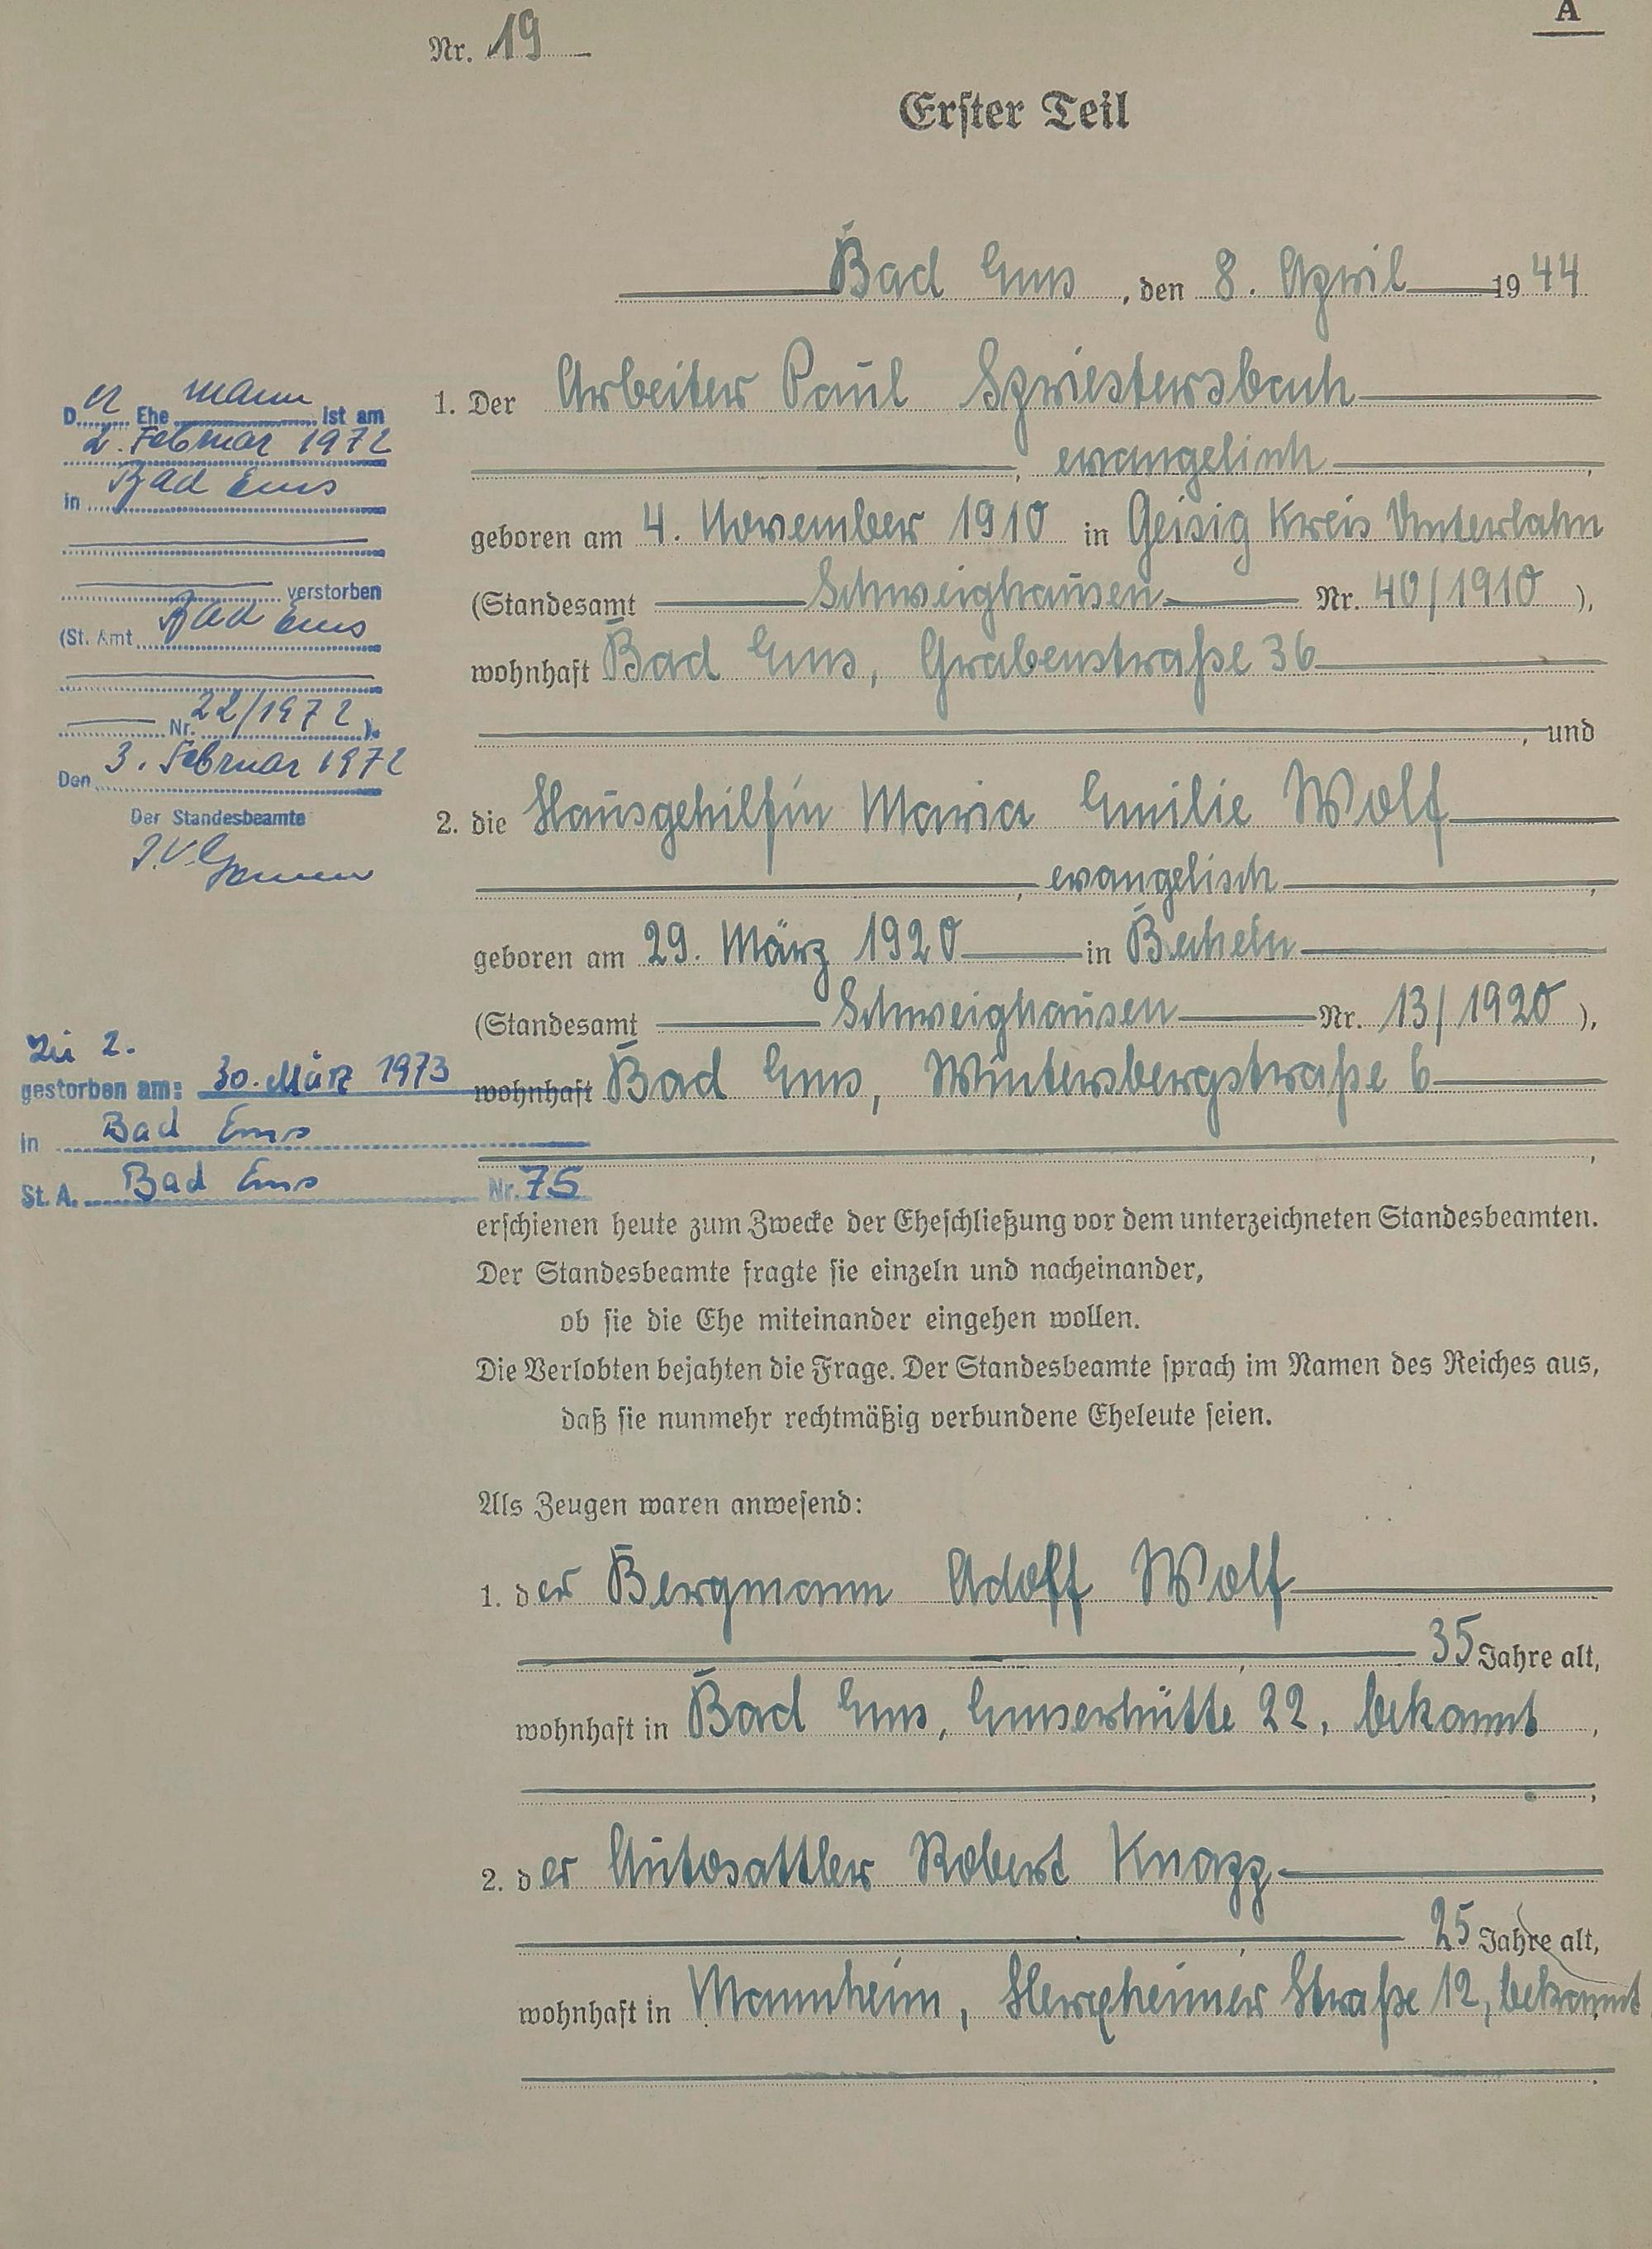 A
Nr. 19
Erster Teil
Bad Ems, den 8. April 1944
1. Der Arbeiter Paul Spriestersbach
, evangelisch,
geboren am 4. November 1910 in Geisig Kreis Unterlahn
(Standesamt Schweighausen Nr. 40/1910),
wohnhaft Bad Ems, Grabenstraße 36
, und
2. die Hausgehilfin Maria Emilie Wolf
, evangelisch,
geboren am 29. März 1920 in Becheln
(Standesamt Schweighausen Nr. 13/1920),
wohnhaft Bad Ems, Wintersbergstraße 6
,
erschienen heute zum Zwecke der Eheschließung vor dem unterzeichneten Standesbeamten.
Der Standesbeamte fragte sie einzeln und nacheinander,
ob sie die Ehe miteinander eingehen wollen.
Die Verlobten bejahten die Frage. Der Standesbeamte sprach im Namen des Reiches aus,
daß sie nunmehr rechtmäßig verbundene Eheleute seien.
Als Zeugen waren anwesend:
1. der Bergmann Adolf Wolf
, 35 Jahre alt,
wohnhaft in Bad Ems, Emserhütte 22, bekannt,
;
2. der Autosattler Robert Knapp
, 25 Jahre alt,
wohnhaft in Mannheim, Straße 12, bekannt
.
Der Ehemann ist am
2. Februar 1972
in Bad Ems
verstorben
(St. Amt Bad Ems
Nr. 22/1972).
Den 3. Februar 1972
Der Standesbeamte
J.V.
Zu 2.
gestorben am: 30. März 1973
in Bad Ems
St. A. Bad Ems Nr. 75